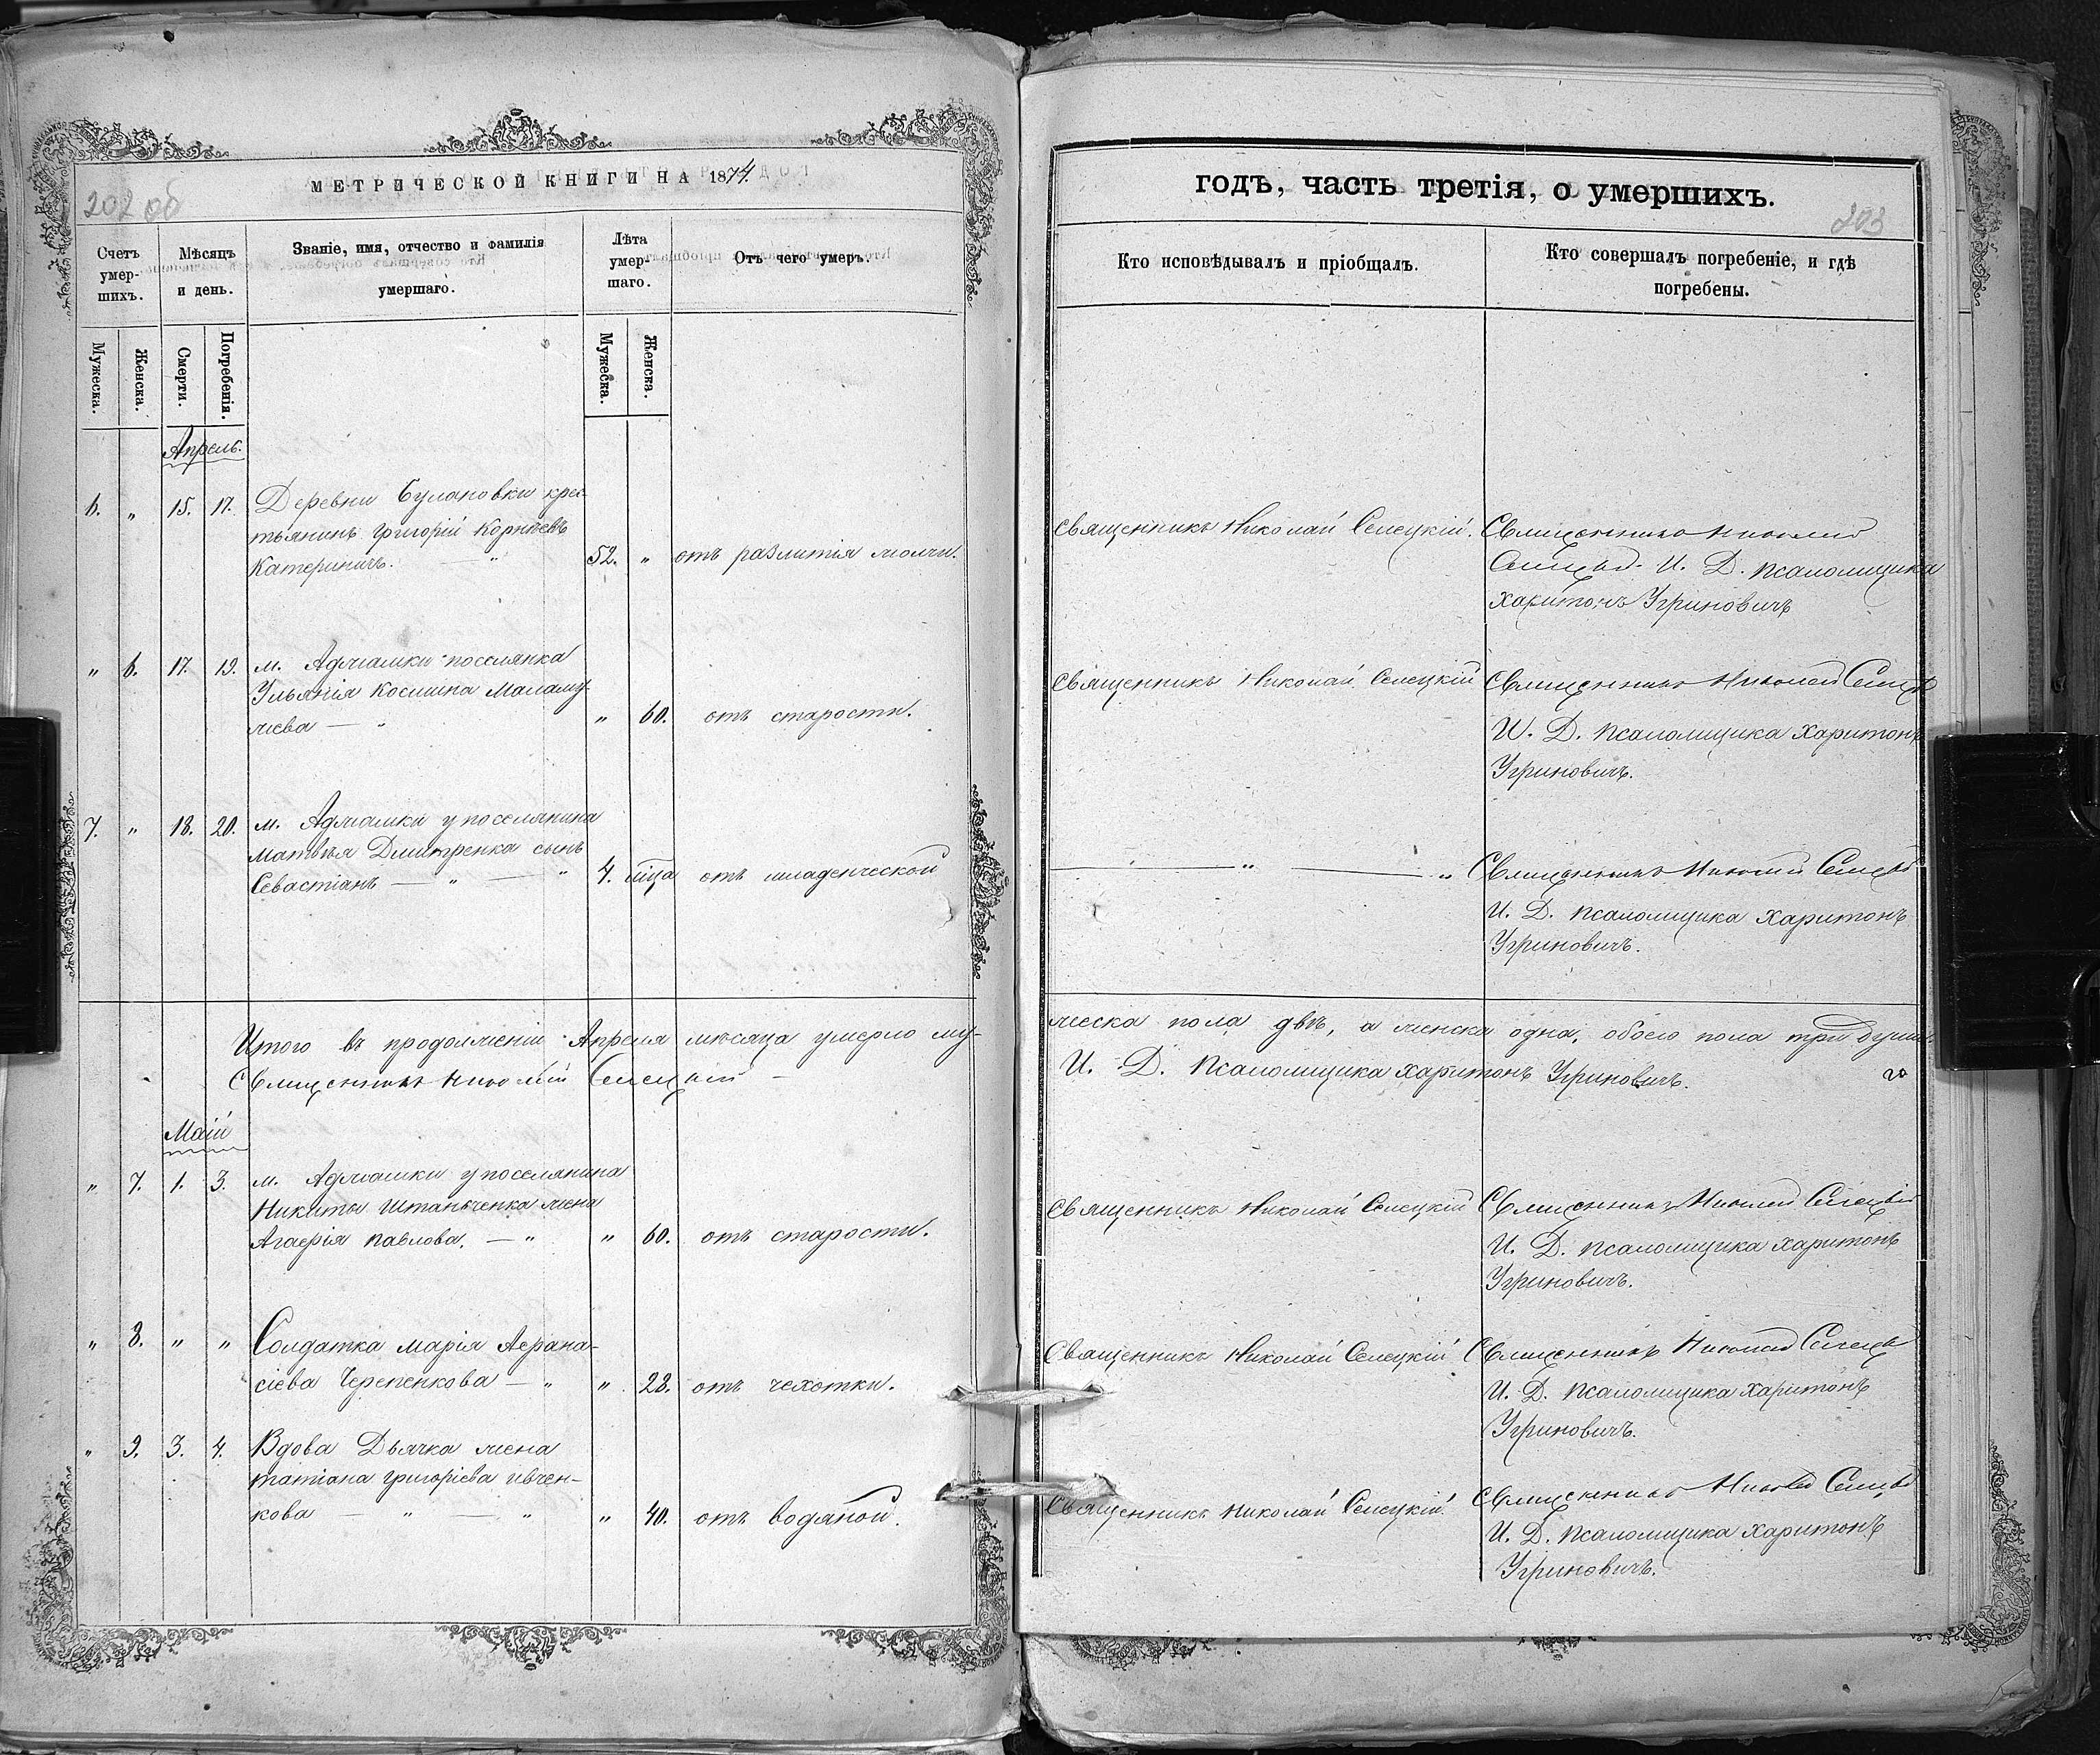 МЕТРИЧЕСКОЙ КНИГИ НА 1874.
202 об
Счетъ умер-шихъ.
Мѣсяцъ и день.
Званіе, имя, отчество и фамилія умершаго.
Лѣта умер-шаго.
Отъ чего умеръ.
Мужеска.
Женска.
Смерти.
Погребенія.
Мужеска.
Женска.
Апрель.
6. „ 15. 17. Деревни Булановки крес-
тьянинъ Григорій Корнѣевъ
Катериничъ. — „ 52. „ отъ разлитія молчи.
„ 6. 17. 19. м. Аджамки поселянка
Ульянія Космина Маламу-
жева — „ „ 60. отъ старости.
7. „ 18. 20. м. Аджамки у поселянина
Матвѣя Дмитренка сынъ
Севастіанъ — „ — „ 4. мѣца отъ младенческой
Итого въ продолженіи Апреля мѣсяца умерло му-
Священникъ Николай Селецкій —
Маій
„ 7. 1. 3. м. Аджамки у поселянина
Никиты Штанъченка жена
Агафія Павлова. — „ „ 60. отъ старости.
„ 8. „ „ Солдатка Марія Афана-
сіева Черепенкова — „ „ 28. отъ чехотки.
„ 9. 3. 4. Вдова Дьячка жена
Татіана Григоріева Ивчен-
кова — „ — „ „ 40. отъ водяной.
годъ, часть третія, о умершихъ.
203
Кто исповѣдывалъ и пріобщалъ.
Кто совершалъ погребеніе, и гдѣ погребены.
Священникъ Николай Селецкій. Священникъ Николай
Селецкій. И. Д. Псаломщика
Харитонъ Угриновичъ
Священникъ Николай Селецкій Священникъ Николай Селецкій
И. Д. Псаломщика Харитонъ
Угриновичъ.
— „ — „ Священникъ Николай Селецкій
И. Д. Псаломщика Харитонъ
Угриновичъ.
жеска пола двѣ, а женска одна, обоего пола три души.
И. Д. Псаломщика Харитонъ Угриновичъ.
Священникъ Николай Селецкій Священникъ Николай Селецкій
И. Д. Псаломщика Харитонъ
Угриновичъ.
Священникъ Николай Селецкій Священникъ Николай Селецкій
И. Д. Псаломщика Харитонъ
Угриновичъ.
Священникъ Николай Селецкій. Священникъ Николай Селецкій
И. Д. Псаломщика Харитонъ
Угриновичъ.